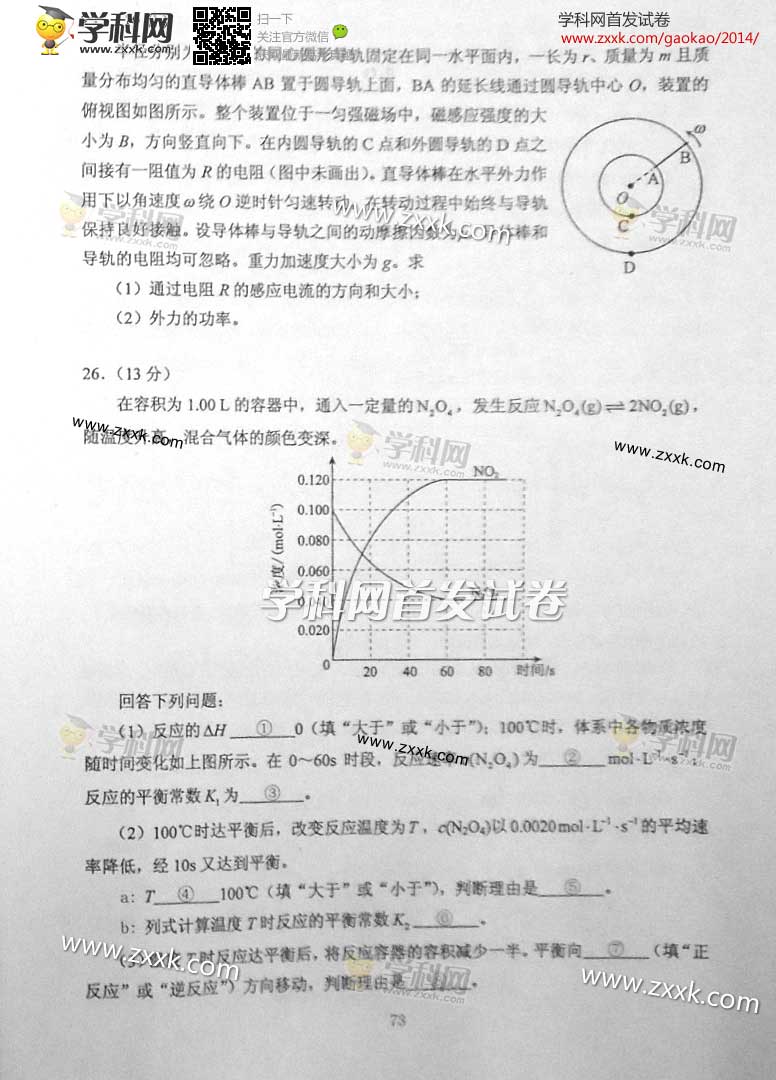 学科网
www.zxxk.com
扫一下
关注官方微信
学科网首发试卷
www.zxxk.com/gaokao/2014/
同心圆形导轨固定在同一水平面内，一长为 r、质量为 m 且质
量分布均匀的直导体棒 AB 置于圆导轨上面，BA 的延长线通过圆导轨中心 O，装置的
俯视图如图所示。整个装置位于一匀强磁场中，磁感应强度的大
小为 B，方向竖直向下。在内圆导轨的 C 点和外圆导轨的 D 点之
间接有一阻值为 R 的电阻（图中未画出）。直导体棒在水平外力作
用下以角速度 ω 绕 O 逆时针匀速转动，在转动过程中始终与导轨
保持良好接触。设导体棒与导轨之间的动摩擦因数为 导体棒和
导轨的电阻均可忽略。重力加速度大小为 g。求
（1）通过电阻 R 的感应电流的方向和大小；
（2）外力的功率。
ω
B
A
O
C
D
26.（13 分）
在容积为 1.00 L 的容器中，通入一定量的 N₂O₄，发生反应 N₂O₄(g)⇌2NO₂(g)，
随温度升高，混合气体的颜色变深。
浓度/(mol·L⁻¹)
0.120
0.100
0.080
0.060
0.020
0
20 40 60 80 时间/s
NO₂
学科网首发试卷
回答下列问题：
（1）反应的 ΔH ① 0（填“大于”或“小于”）；100℃时，体系中各物质浓度
随时间变化如上图所示。在 0～60s 时段，反应速率 v(N₂O₄) 为 ② mol·L⁻¹·s⁻¹；
反应的平衡常数 K₁ 为 ③ 。
（2）100℃时达平衡后，改变反应温度为 T，c(N₂O₄)以 0.0020 mol·L⁻¹·s⁻¹ 的平均速
率降低，经 10s 又达到平衡。
a：T ④ 100℃（填“大于”或“小于”），判断理由是 ⑤ 。
b：列式计算温度 T 时反应的平衡常数 K₂ ⑥ 。
（3） T 时反应达平衡后，将反应容器的容积减少一半。平衡向 ⑦ （填“正
反应”或“逆反应”）方向移动，判断理由是 。
73